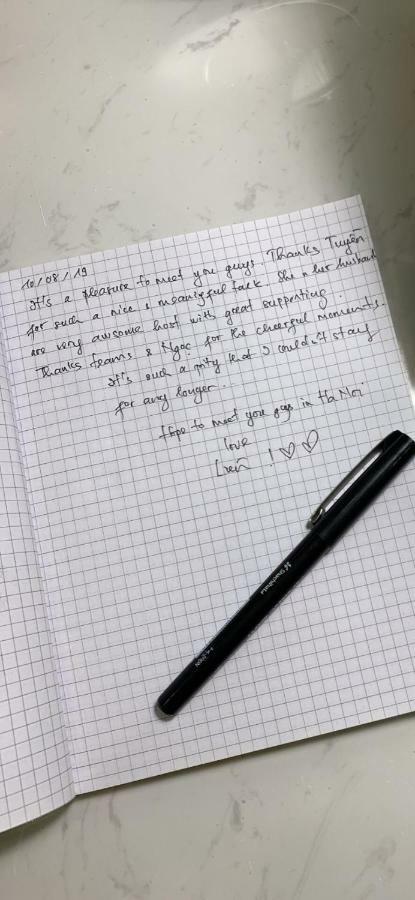 10/08/19
It's a pleasure to meet you guys. Thanks Tuyên
for such a nice & meaningful talk. She & her husband
are very awsome host with great supporting.
Thanks teams & Ngọc for the cheerful moments.
It's such a pity that I couldn't stay
for any longer.
Hope to meet you guys in Ha Noi
love
! ♡♡